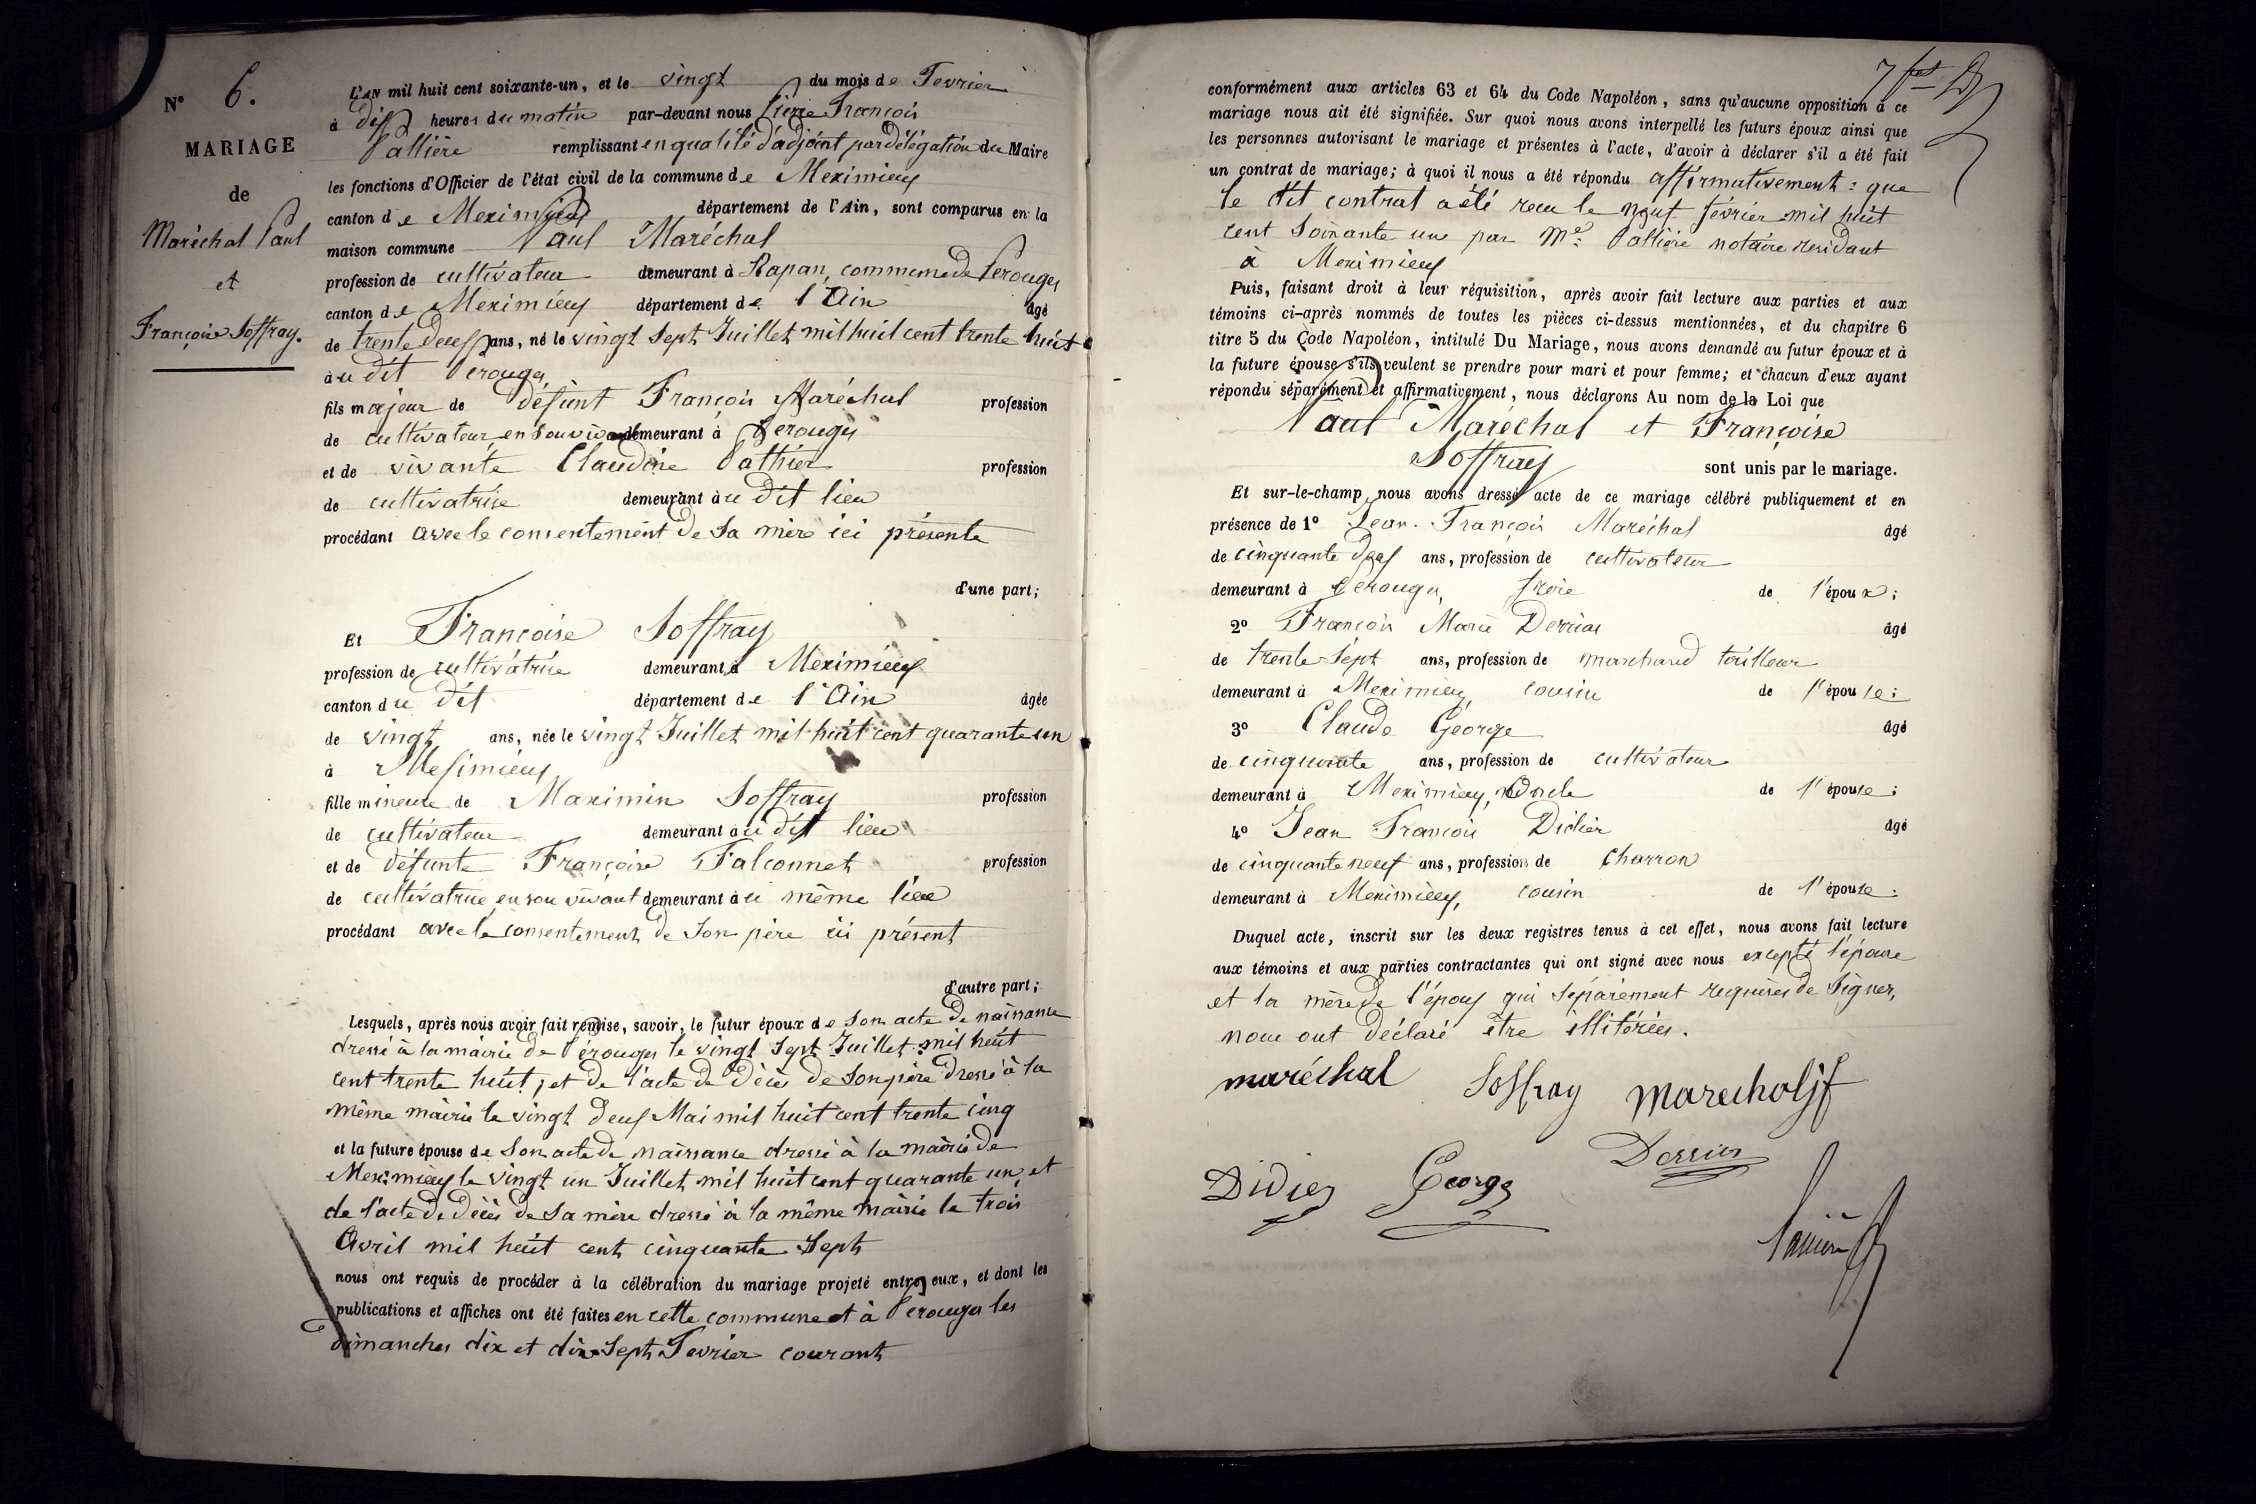 N° 6.
MARIAGE
de
Maréchal Paul
et
Françoise Soffray.
L'AN mil huit cent soixante-un, et le vingt du mois de Fevrier
à dix heures du matin par-devant nous François
Pallière remplissant en qualité d'adjoint par délégation du Maire
les fonctions d'Officier de l'état civil de la commune de Meximieux
canton de Meximieux département de l'Ain, sont comparus en la
maison commune Paul Maréchal
profession de cultivateur demeurant à Rapan, commune de Perouges
canton de Meximieux département de l'Ain âgé
de trente deux ans, né le vingt sept Juillet mil huit cent trente huit
au dit Perouges
fils majeur de défunt François Maréchal profession
de cultivateur en son vivant demeurant à Perouges
et de vivante Claudine Pathier profession
de cultivatrice demeurant au dit lieu
procédant avec le consentement de sa mère ici présente
d'une part;
Et Françoise Soffray
profession de cultivatrice demeurant à Meximieux
canton du dit département de l'Ain âgée
de vingt ans, née le vingt Juillet mil huit cent quarante un
à Meximieux
fille mineure de Maximin Soffray profession
de cultivateur demeurant au dit lieu
et de défunte Françoise Falconnet profession
de cultivatrice en son vivant demeurant au même lieu
procédant avec le consentement de son père ici présent
d'autre part;
Lesquels, après nous avoir fait remise, savoir, le futur époux de son acte de naissance
dressé à la mairie de Pérouges le vingt sept Juillet mil huit
cent trente huit, et de l'acte de décès de son père dressé à la
même mairie le vingt deux Mai mil huit cent trente cinq
et la future épouse de son acte de naissance dressé à la mairie de
Meximieux le vingt un Juillet mil huit cent quarante un, et
de l'acte de décès de sa mère dressé à la même mairie le trois
Avril mil huit cent cinquante sept
nous ont requis de procéder à la célébration du mariage projeté entre eux, et dont les
publications et affiches ont été faites en cette commune et à Perouges les
dimanches dix et dix sept Fevrier courant
conformément aux articles 63 et 64 du Code Napoléon, sans qu'aucune opposition à ce
mariage nous ait été signifiée. Sur quoi nous avons interpellé les futurs époux ainsi que
les personnes autorisant le mariage et présentes à l'acte, d'avoir à déclarer s'il a été fait
un contrat de mariage; à quoi il nous a été répondu affirmativement: que
le dit contrat a été recu le neuf février mil huit
cent soixante un par Me. Pallière notaire residant
à Meximieux
Puis, faisant droit à leur réquisition, après avoir fait lecture aux parties et aux
témoins ci-après nommés de toutes les pièces ci-dessus mentionnées, et du chapitre 6
titre 5 du Code Napoléon, intitulé Du Mariage, nous avons demandé au futur époux et à
la future épouse s'ils veulent se prendre pour mari et pour femme; et chacun d'eux ayant
répondu séparément et affirmativement, nous déclarons Au nom de la Loi que
Paul Maréchal et Françoise
Soffray sont unis par le mariage.
Et sur-le-champ nous avons dressé acte de ce mariage célébré publiquement et en
présence de 1° Jean-François Maréchal âgé
de cinquante deux ans, profession de cultivateur
demeurant à Perouges, frère de l'époux;
2° François Marie Derrias âgé
de trente sept ans, profession de marchand tailleur
demeurant à Meximieux cousin de l'épouse;
3° Claude George âgé
de cinquante ans, profession de cultivateur
demeurant à Meximieux, oncle de l'épouse;
4° Jean François Didier âgé
de cinquante neuf ans, profession de charron
demeurant à Meximieux, cousin de l'épouse.
Duquel acte, inscrit sur les deux registres tenus à cet effet, nous avons fait lecture
aux témoins et aux parties contractantes qui ont signé avec nous excepté l'épouse
et la mère de l'époux qui séparément requises de signer,
nous ont déclaré être illitérées.
maréchal Soffray Marechal jf
Derrias
Didier George
Pallière